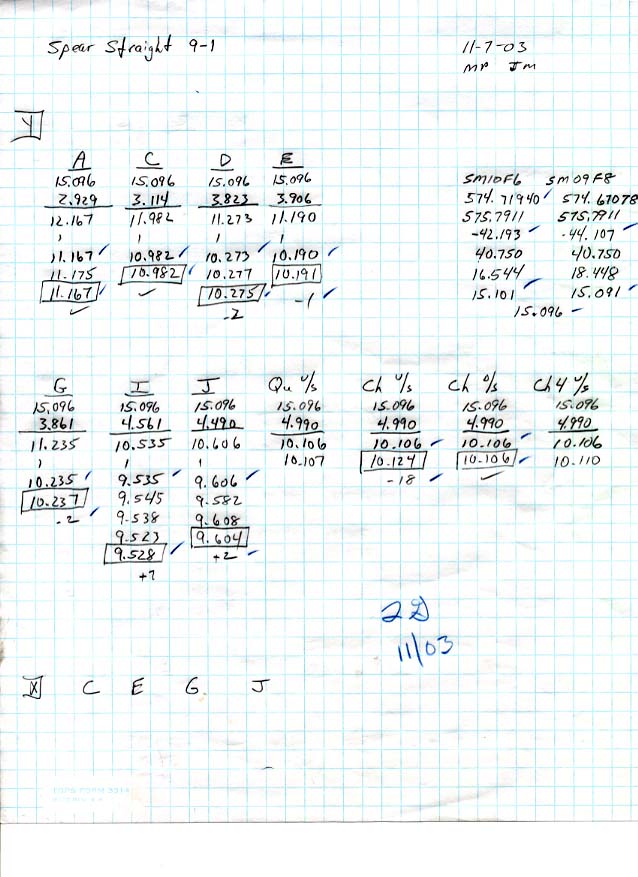 Spear Straight 9-1 11-7-03
MP JM
Y
A C D E
15.096 15.096 15.096 15.096 SM10F6 SM09F8
2.929 3.114 3.823 3.906 574.71940 574.67078
12.167 11.982 11.273 11.190 575.7911 575.7911
1 1 1 1 -42.193 -44.107
11.167 10.982 10.273 10.190 40.750 40.750
11.175 10.982 10.277 10.191 16.544 18.448
11.167 10.275 -1 15.101 15.091
-2 15.096
G I J Qu u/s Ch u/s Ch d/s Ch4 u/s
15.096 15.096 15.096 15.096 15.096 15.096 15.096
3.861 4.561 4.490 4.990 4.990 4.990 4.990
11.235 10.535 10.606 10.106 10.106 10.106 10.106
1 1 1 10.107 10.124 10.106 10.110
10.235 9.535 9.606 -18
10.237 9.545 9.582
-2 9.538 9.608
9.523 9.604
9.528 +2
+7
2D
11/03
X C E G J
TOPS FORM 3314